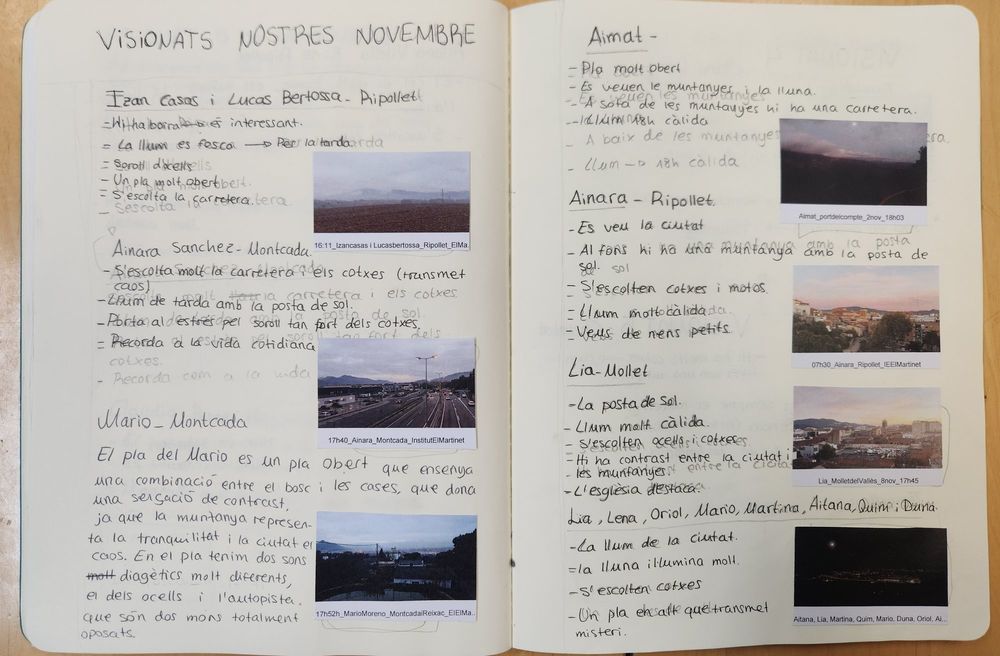 VISIONATS NOSTRES NOVEMBRE
Izan Casas i Lucas Bertossa - Ripollet
- Hi ha boira interessant.
- La llum és fosca → Per la tarda.
- Soroll d'ocells
- Un pla molt obert
- S'escolta la carretera.
16:11_Izancasas i Lucasbertossa_Ripollet_ElMa...
Ainara Sanchez - Montcada.
- S'escolta molt la carretera i els cotxes (transmet
caos)
- Llum de tarda amb la posta de sol.
- Porta al estrés pel soroll tan fort dels cotxes.
- Recorda a la vida cotidiana
17h40_Ainara_Montcada_InstitutElMartinet
Mario - Montcada
El pla del Mario es un pla obert que ensenya
una combinació entre el bosc i les cases, que dona
una serçació de contrast,
ja que la muntanya represen-
ta la tranquilitat i la ciutat el
caos. En el pla tenim dos sons
molt diagètics molt diferents,
el dels ocells i l'autopista.
que són dos mons totalment
oposats.
17h52h_MarioMoreno_MontcadaiReixac_ElElMa...
Aimat -
- Pla molt obert
- Es veuen le muntanyes i la lluna.
- A sota de les muntanyes hi ha una carretera.
- Llum 18h càlida
A baix de les muntanyes
- Llum → 18h càlida
Aimat_portdelcompte_2nov_18h03
Ainara - Ripollet
- Es veu la ciutat
- Al fons hi ha una muntanya amb la posta de
sol.
- S'escolten cotxes i motos
- Llum molt càlida.
- Veus de nens petits.
07h30_Ainara_Ripollet_IEElMartinet
Lia - Mollet
- La posta de sol.
- Llum molt càlida.
- S'escolten ocells i cotxes
- Hi ha contrast entre la ciutat i
les muntanyes
- L'església destaca.
Lia_MolletdelVallès_8nov_17h45
Lia, Lena, Oriol, Mario, Martina, Aitana, Quim i Duna.
- La llum de la ciutat.
- la lluna il·lumina moll.
- S'escolten cotxes
- Un pla en alt que transmet
misteri.
Aitana, Lia, Martina, Quim, Mario, Duna, Oriol, Ai...